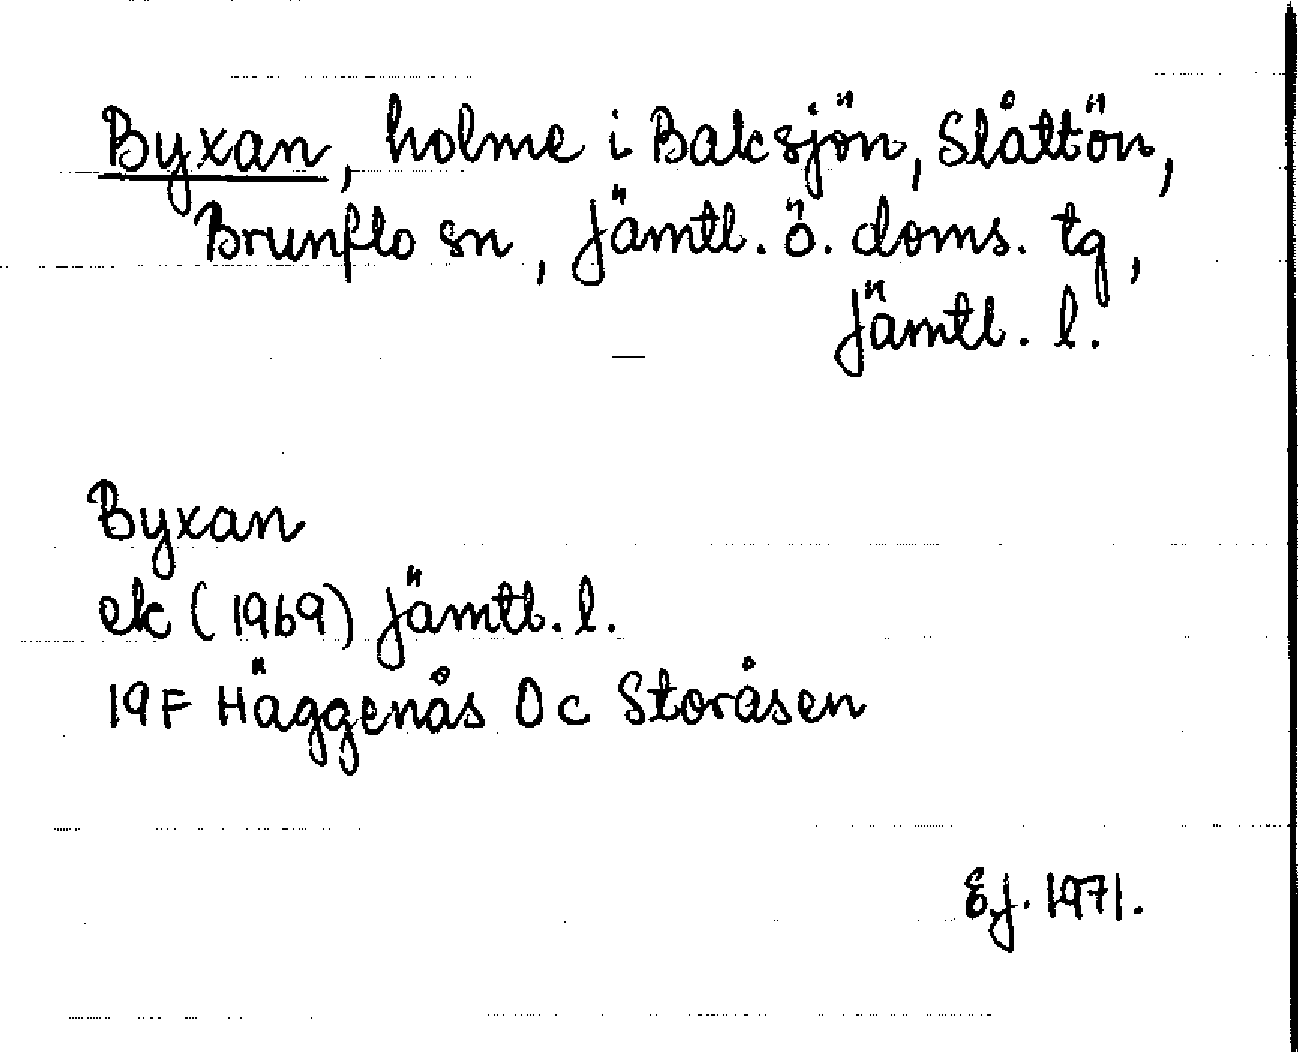 Byxan, holme i Baksjön, Slåttön,
Brunflo sn, Jämtl. ö. doms. tg,
Jämtl. l.
Byxan
ek (1969) Jämtl. l.
19F Häggenås 0c Storåsen
E.J. 1971.